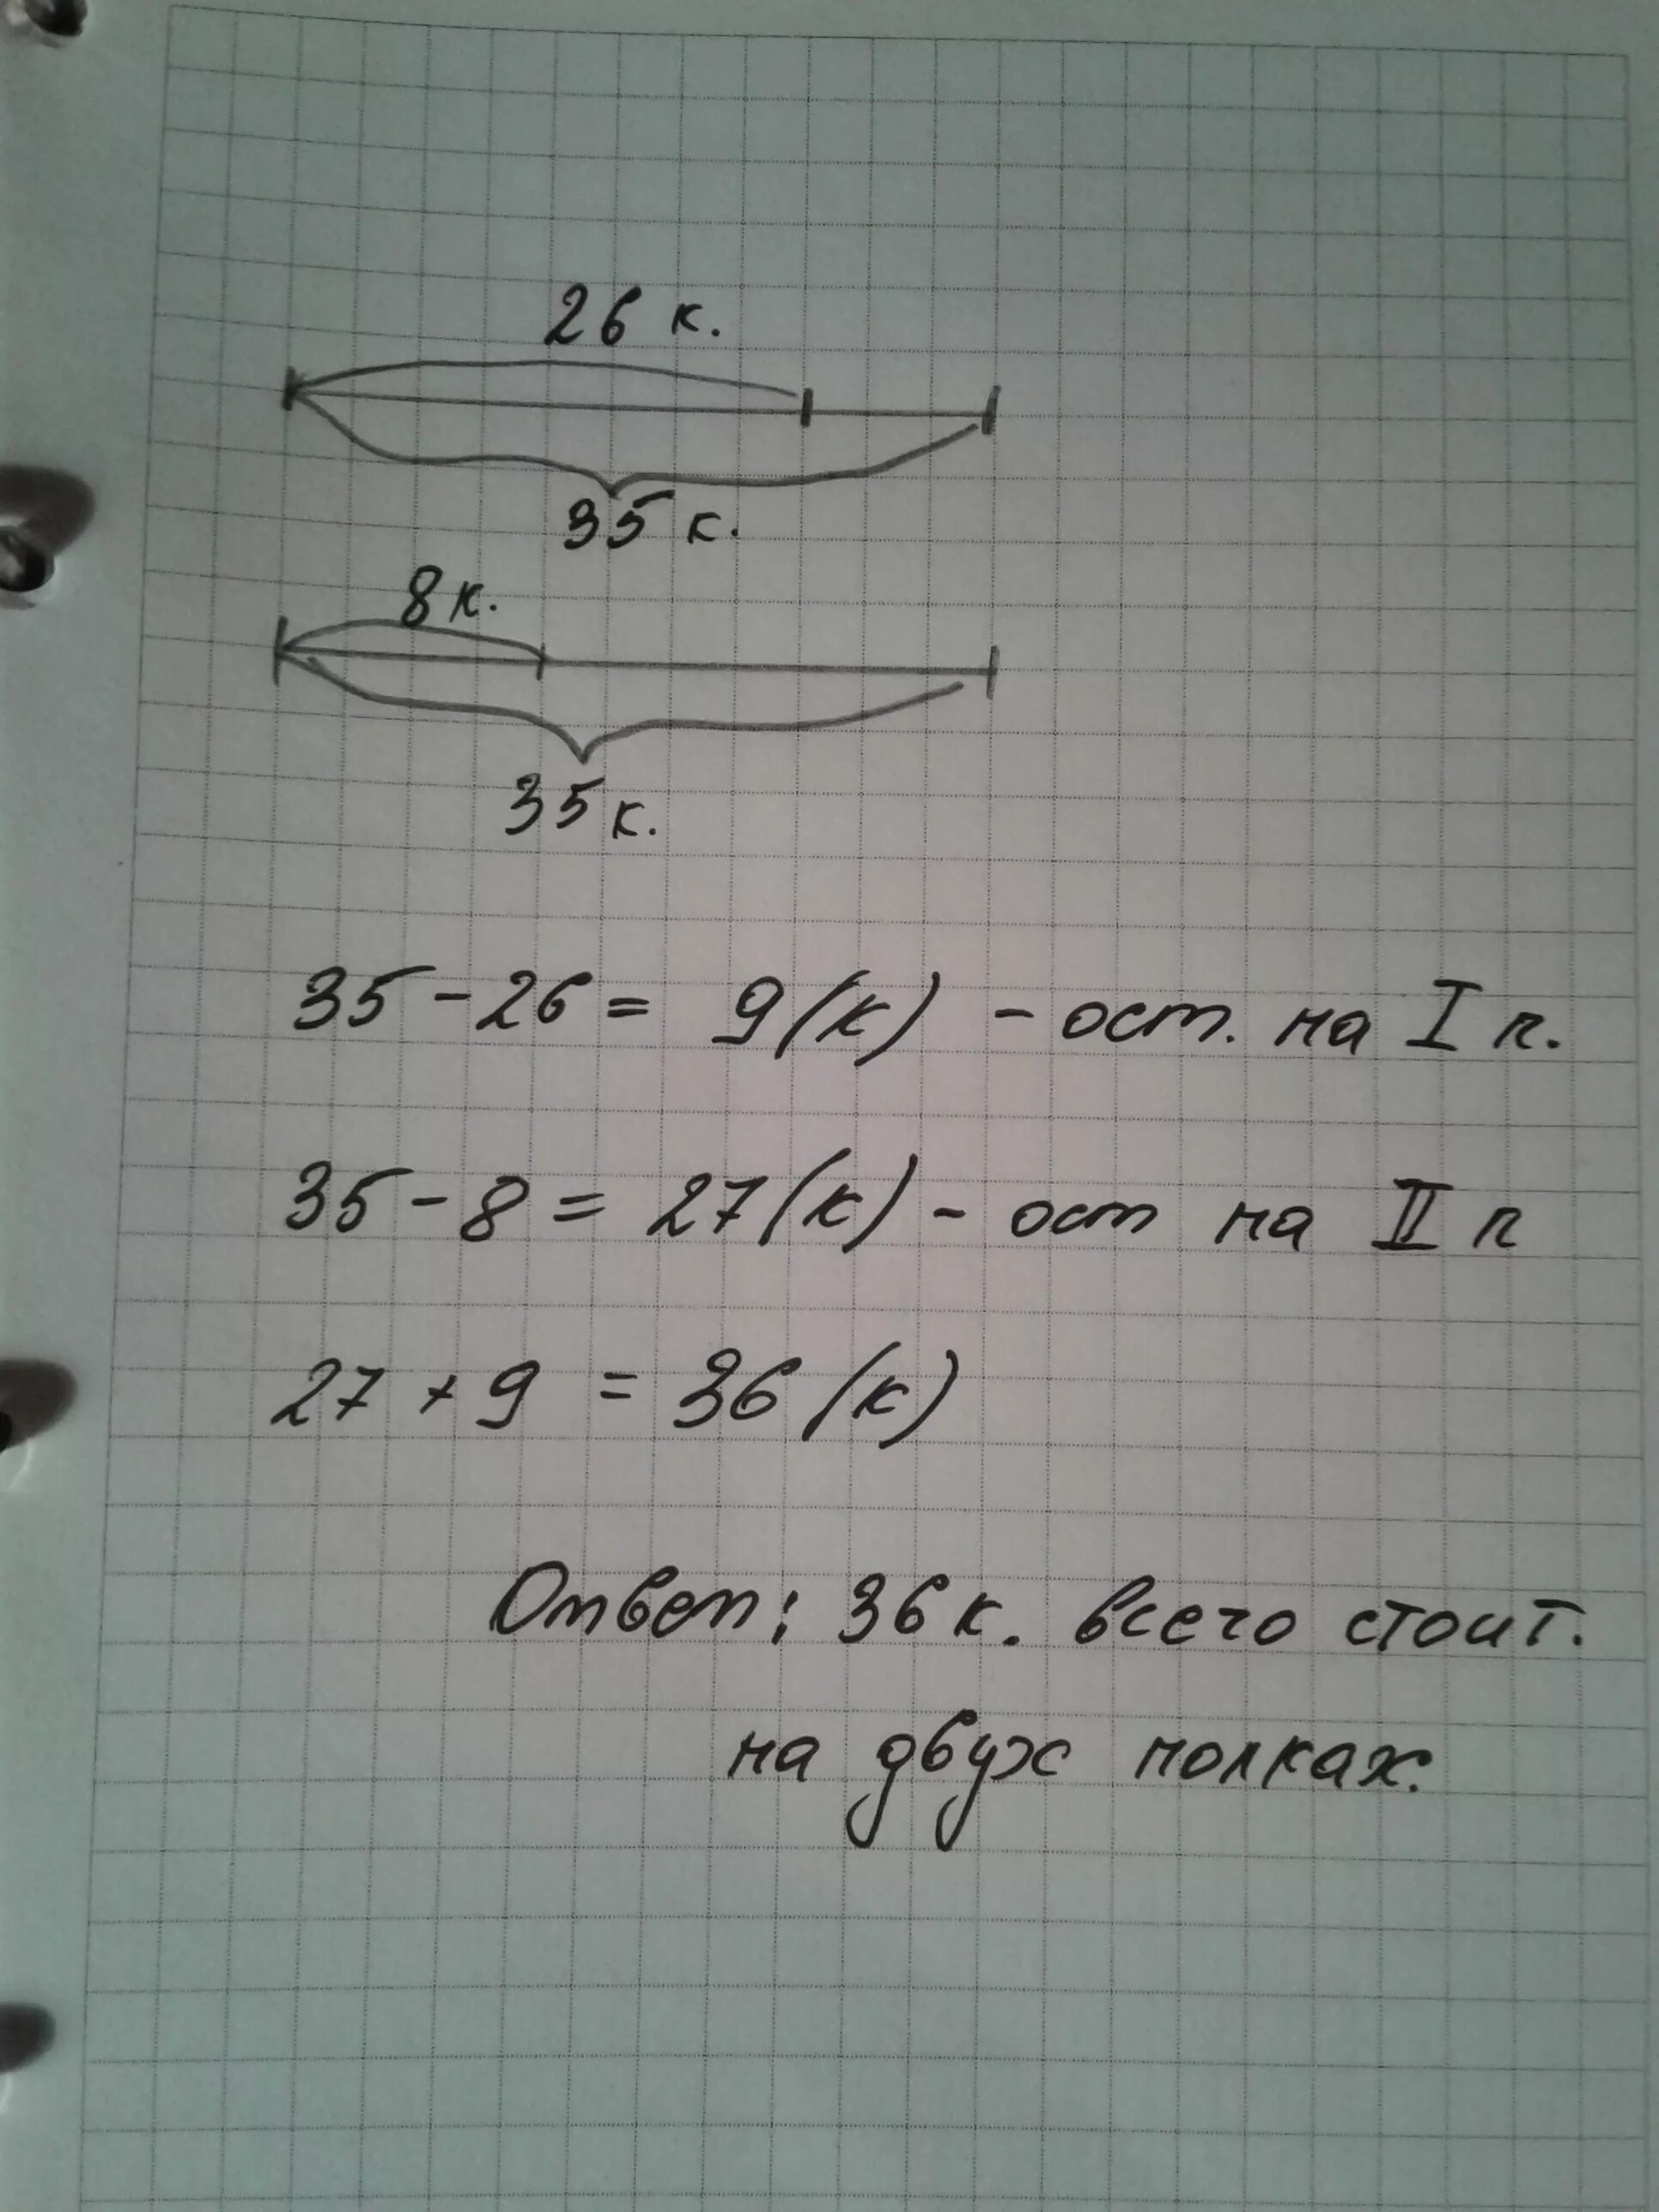 26 к.
35 к.
8 к.
35 к.
35 - 26 = 9 (к) - ост. на I п.
35 - 8 = 27 (к) - ост на II п
27 + 9 = 36 (к)
Ответ: 36 к. всего стоит.
на двух полках.